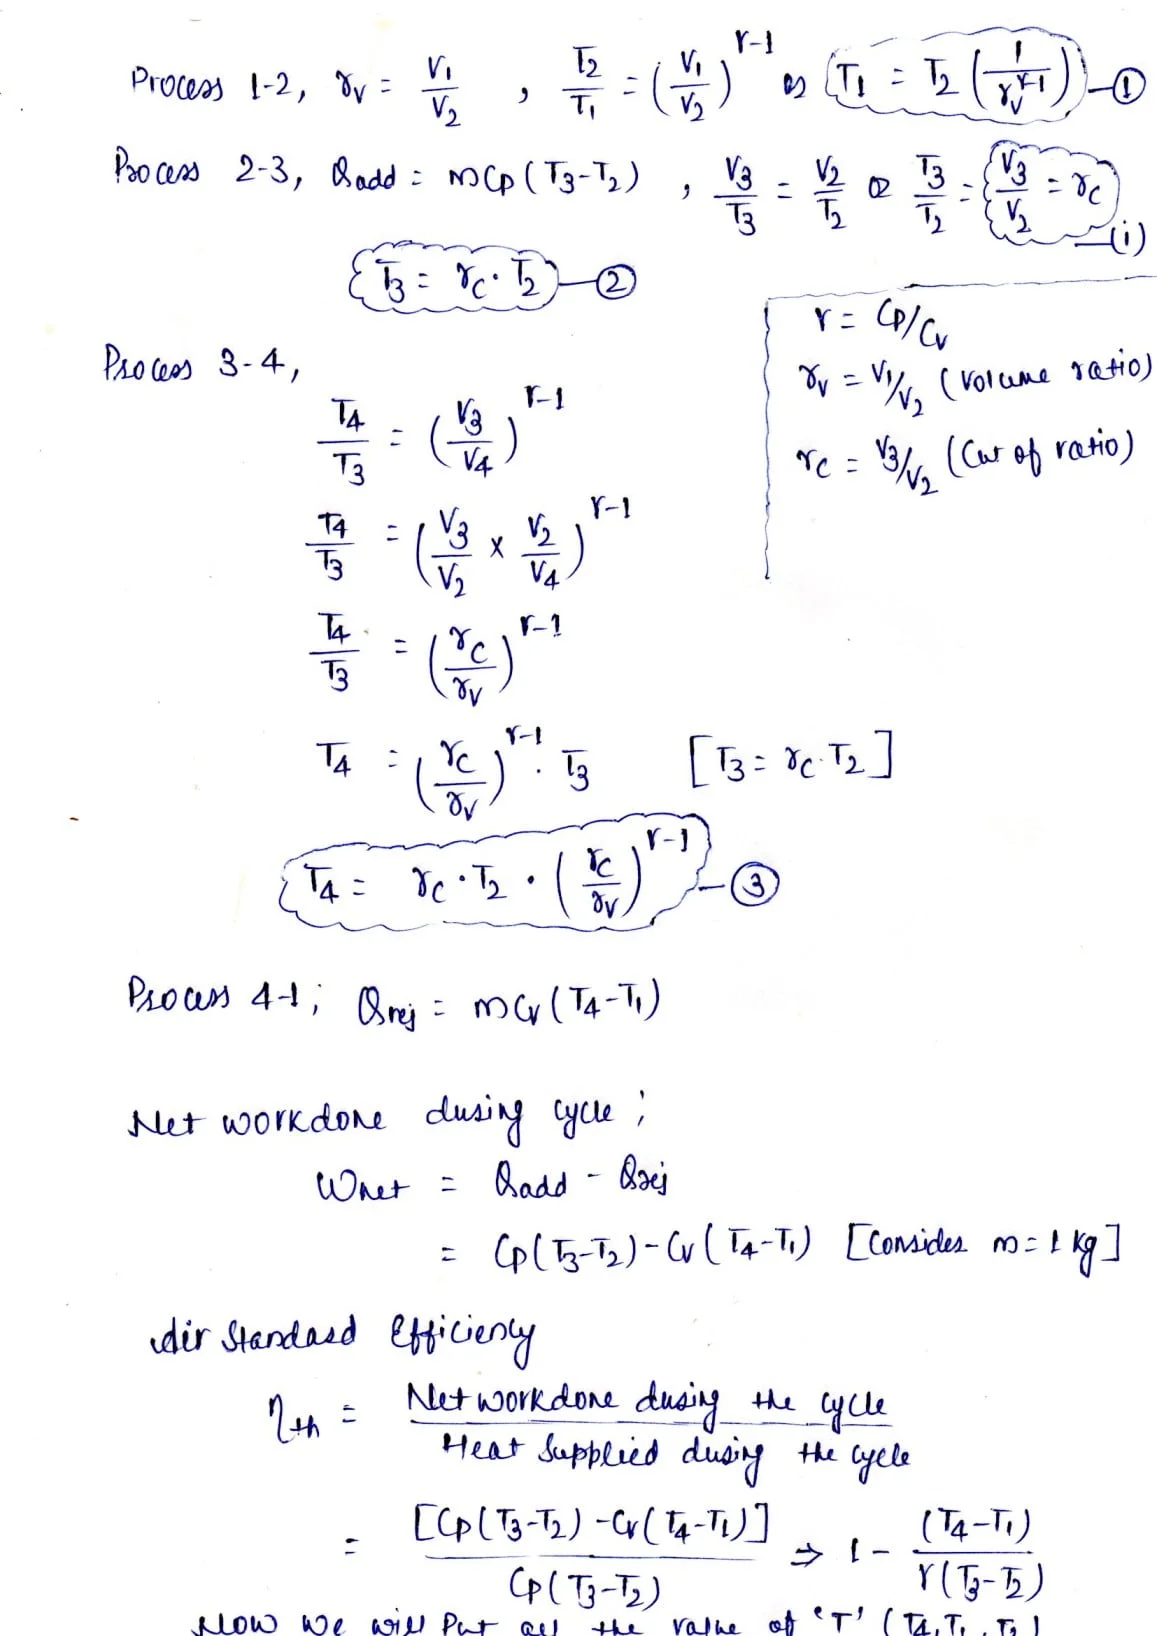 Process 1-2, r_v = V1/V2 , T2/T1 = (V1/V2)^(γ-1) or T1 = T2 (1/r_v^(γ-1)) —①
Process 2-3, Qadd = mCp(T3-T2) , V3/T3 = V2/T2 or T3/T2 = V3/V2 = r_c —(i)
T3 = r_c · T2 —②
γ = Cp/Cv
r_v = V1/V2 (Volume ratio)
r_c = V3/V2 (Cut of ratio)
Process 3-4,
T4/T3 = (V3/V4)^(γ-1)
T4/T3 = (V3/V2 × V2/V4)^(γ-1)
T4/T3 = (r_c/r_v)^(γ-1)
T4 = (r_c/r_v)^(γ-1) · T3 [T3 = r_c · T2]
T4 = r_c · T2 · (r_c/r_v)^(γ-1) —③
Process 4-1; Qrej = mCv(T4-T1)
Net workdone during cycle;
Wnet = Qadd - Qrej
= Cp(T3-T2) - Cv(T4-T1) [Consider m = 1 kg]
Air Standard Efficiency
ηth = Net workdone during the cycle / Heat Supplied during the cycle
= [Cp(T3-T2) - Cv(T4-T1)] / Cp(T3-T2) ⇒ 1 - (T4-T1) / γ(T3-T2)
Now we will Put all the value of 'T' (T4, T1, T3)